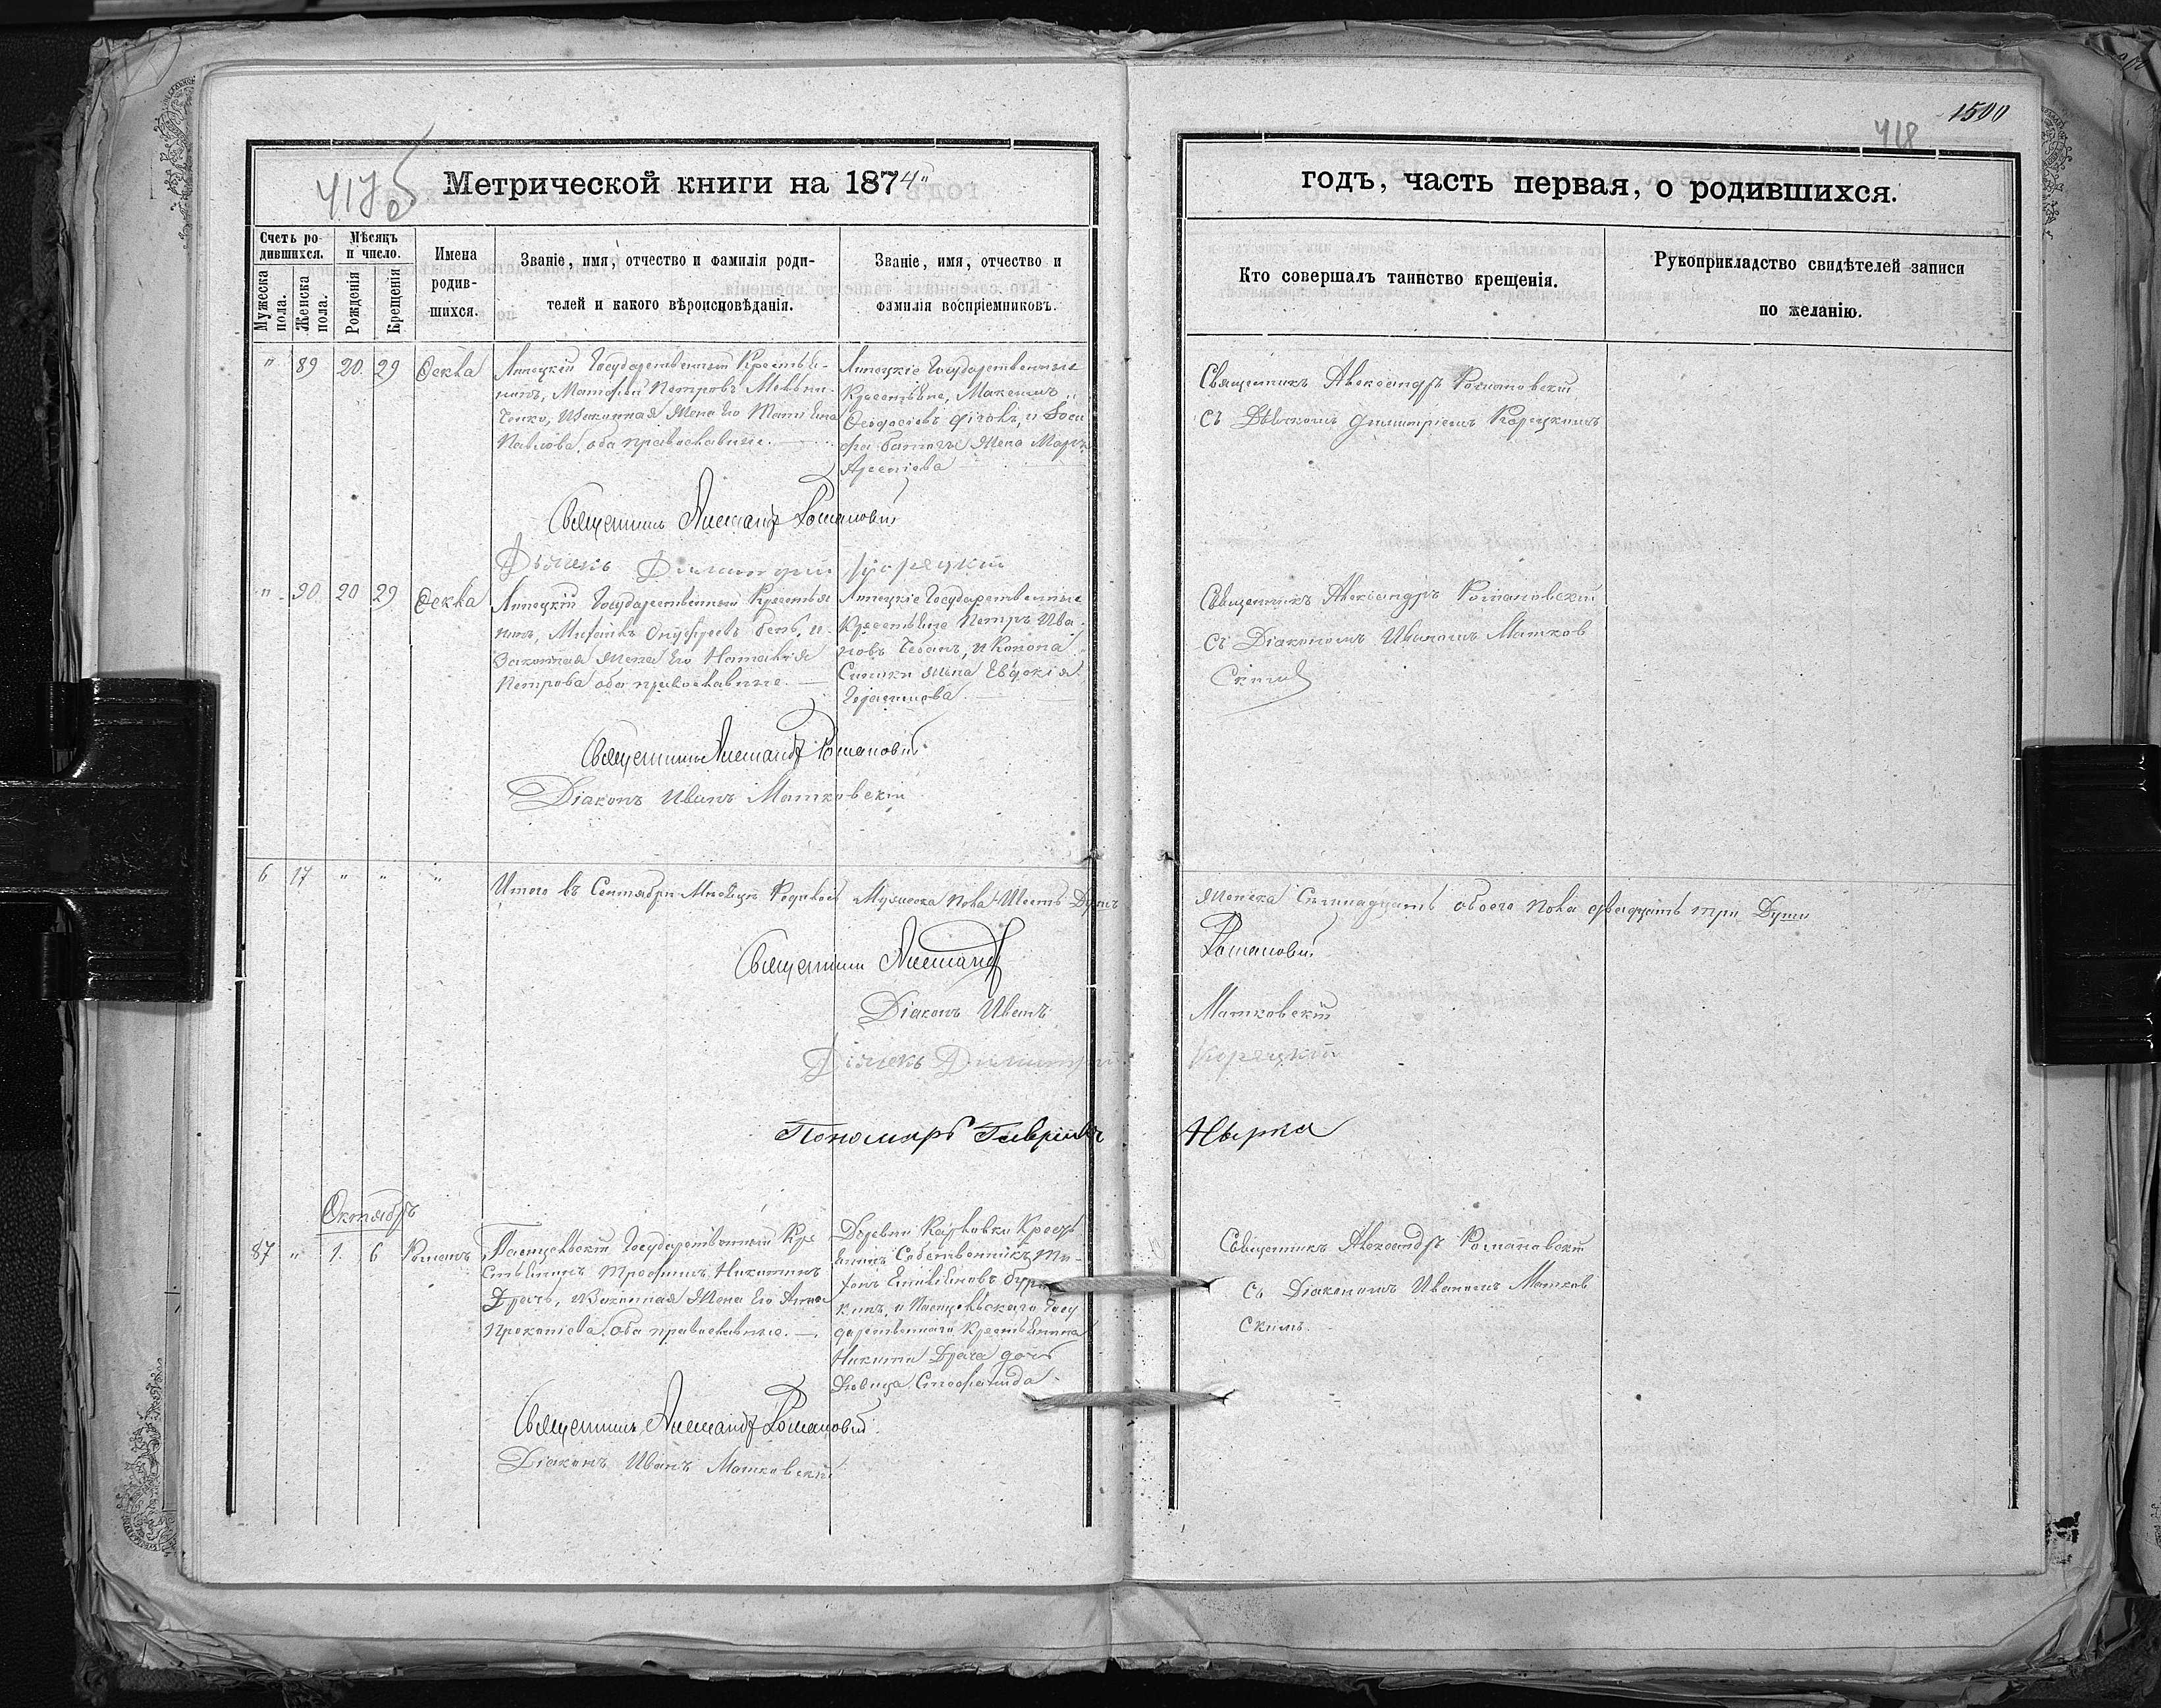 1500
418
417 об
Метрической книги на 1874
годъ, часть первая, о родившихся.
Счетъ ро-
дившихся.
Мужеска пола.
Женска пола.
Мѣсяцъ
и число.
Рожденія
Крещенія
Имена
родив-
шихся.
Званіе, имя, отчество и фамилія роди-
телей и какого вѣроисповѣданія.
Званіе, имя, отчество и
фамилія воспріемниковъ.
Кто совершалъ таинство крещенія.
Рукоприкладство свидѣтелей записи
по желанію.
" 89 20 29 Ѳекла
Липецкій Государственный Крестья-
нинъ, Петровъ
законная жена его
Павлова, оба православные.
Липецкіе Государственные
Крестьяне, Максимъ
Ѳеодосіевъ
жена
Арсеніева
Священникъ Александръ Романовскій
съ Дьячкомъ Димитріемъ Корецкимъ
Священникъ Александръ Романовскій
Дьячекъ Димитрій Корецкій
" 90 20 29 Ѳекла
Липецкій Государственный Крестья
нинъ, и
законная жена его Наталія
Петрова оба православные.
Липецкіе Государственные
Крестьяне Петръ Ива
новъ Чебанъ, и Конона
жена Евдокія
Герасимова
Священникъ Александръ Романовскій
съ Діакономъ Иваномъ Матков
скимъ
Священникъ Александръ Романовскій
Діаконъ Иванъ Матковскій
6 17 " " "
Итого въ Сентябрѣ Мѣсяцѣ Родилось Мужеска пола Шесть Душъ
Женска Семнадцать обоего пола двадцать три Души
Священникъ Александръ Романовскій
Діаконъ Иванъ Матковскій
Дьячекъ Димитрій Корецкій
Пономарь Гавріилъ Нырка
Октябрь
87 " 1. 6 Романъ
Государственный Кре
стьянинъ Трофимъ Никитинъ
Драчъ, и законная жена его Анна
Прокопіева, оба православные.
Деревни Карловки Кресть
янинъ Собственникъ
Емиліановъ
кинъ, и Госу
дарственнаго Крестьянина
Никиты Драча дочь
Дѣвица Стефанида
Священникъ Александръ Романовскій
съ Діакономъ Иваномъ Матков
скимъ.
Священникъ Александръ Романовскій
Діаконъ Иванъ Матковскій